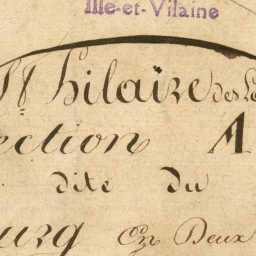 Ille-et-Vilaine
St hilaire des
ection A
dite du
ourg En Deux